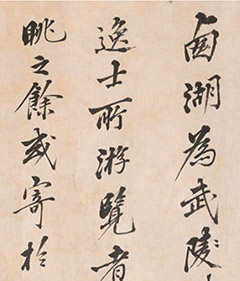 西湖為武陵
逸士所游覽者
眺之餘或寄於